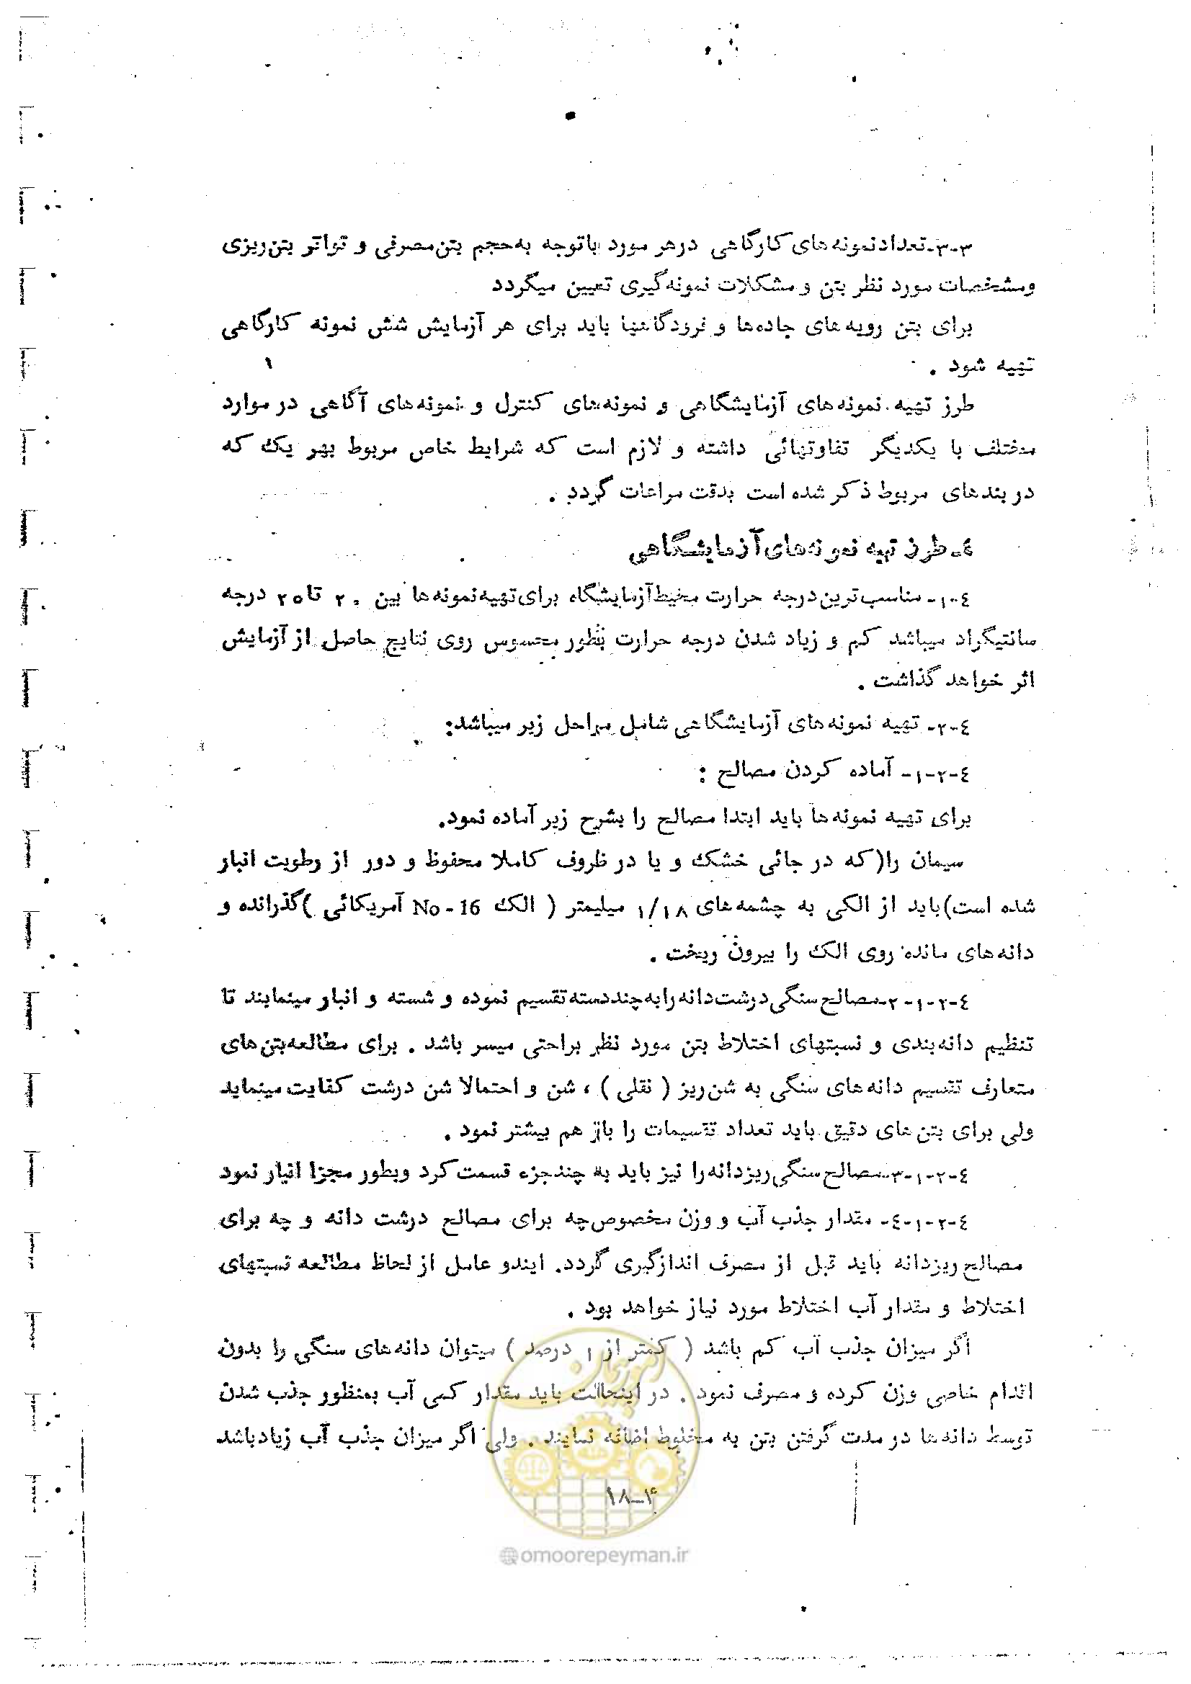 ۳-۳-تعداد نمونه‌های کارگاهی در هر مورد با توجه به حجم بتن مصرفی و تواتر بتن‌ریزی
ومشخصات مورد نظر بتن و مشکلات نمونه‌گیری تعیین میگردد
برای بتن رویه‌های جاده‌ها و فرودگاهها باید برای هر آزمایش شش نمونه کارگاهی
تهیه شود .
طرز تهیه نمونه‌های آزمایشگاهی و نمونه‌های کنترل و نمونه‌های آگاهی در موارد
مختلف با یکدیگر تفاوتهائی داشته و لازم است که شرایط خاص مربوط بهر یک که
در بندهای مربوط ذکر شده است بدقت مراعات گردد .
٤- طرز تهیه نمونه‌های آزمایشگاهی
٤-۱- مناسب‌ترین درجه حرارت محیط آزمایشگاه برای تهیه نمونه‌ها بین ۲۰ تا ۲۵ درجه
سانتیگراد میباشد کم و زیاد شدن درجه حرارت بطور محسوس روی نتایج حاصل از آزمایش
اثر خواهد گذاشت .
٤-۲- تهیه نمونه‌های آزمایشگاهی شامل مراحل زیر میباشد:
٤-۲-۱- آماده کردن مصالح :
برای تهیه نمونه‌ها باید ابتدا مصالح را بشرح زیر آماده نمود.
سیمان را(که در جائی خشک و یا در ظروف کاملا محفوظ و دور از رطوبت انبار
شده است)باید از الکی به چشمه‌های ۱/۱۸ میلیمتر ( الک No - 16 آمریکائی )گذرانده و
دانه‌های مانده روی الک را بیرون ریخت .
٤-۲-۱-۲-مصالح سنگی درشت دانه را به چند دسته تقسیم نموده و شسته و انبار مینمایند تا
تنظیم دانه‌بندی و نسبتهای اختلاط بتن مورد نظر براحتی میسر باشد . برای مطالعه بتن‌های
متعارف تقسیم دانه‌های سنگی به شن‌ریز ( نقلی ) ، شن و احتمالا شن درشت کفایت مینماید
ولی برای بتن‌های دقیق باید تعداد تقسیمات را باز هم بیشتر نمود .
٤-۲-۱-۳-مصالح سنگی ریزدانه را نیز باید به چند جزء قسمت کرد وبطور مجزا انبار نمود
٤-۲-۱-٤- مقدار جذب آب و وزن مخصوص چه برای مصالح درشت دانه و چه برای
مصالح ریزدانه باید قبل از مصرف اندازگیری گردد. ایندو عامل از لحاظ مطالعه نسبتهای
اختلاط و مقدار آب اختلاط مورد نیاز خواهد بود .
اگر میزان جذب آب کم باشد ( کمتر از ۱ درصد ) میتوان دانه‌های سنگی را بدون
اقدام خاصی وزن کرده و مصرف نمود . در اینحالت باید مقدار کمی آب بمنظور جذب شدن
توسط دانه‌ها در مدت گرفتن بتن به مخلوط اضافه نمایند . ولی اگر میزان جذب آب زیادباشد
۱۸-۴
امور پیمان
@omoorepeyman.ir